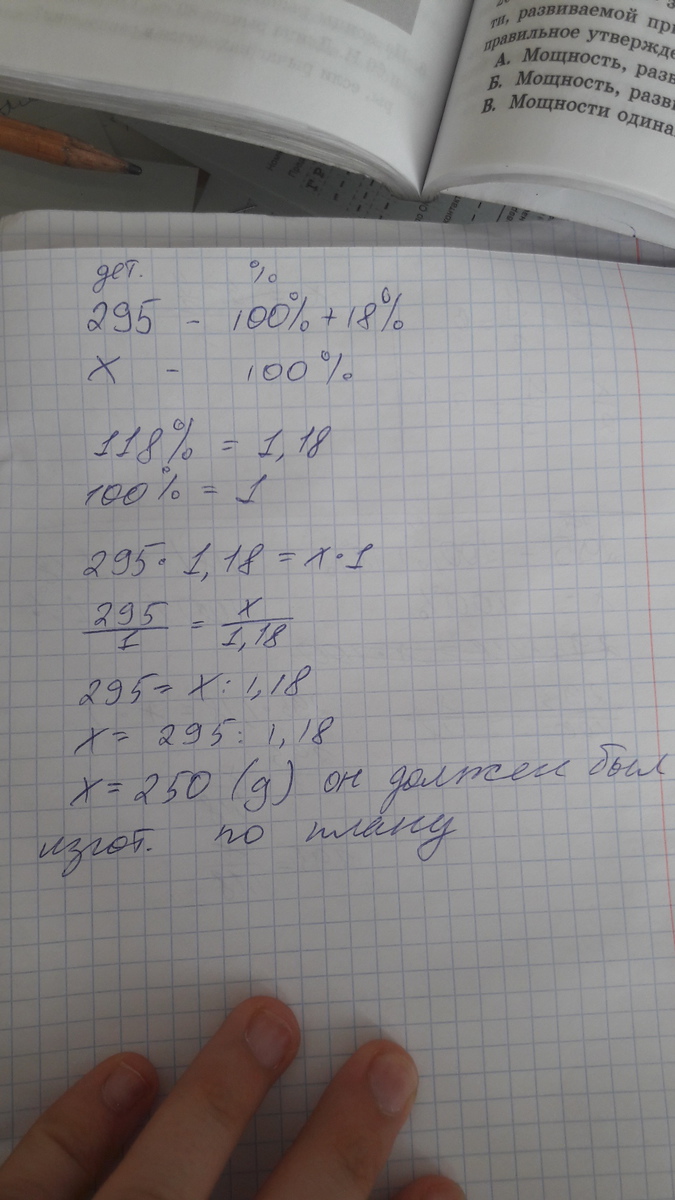 ти, развиваемой при
правильное утвержде
А. Мощность, разв
Б. Мощность, разви
В. Мощности одина
дет. %
295 - 100% + 18%
х - 100%
118% = 1,18
100% = 1
295 · 1,18 = х · 1
295/1 = х/1,18
295 = х : 1,18
х = 295 : 1,18
х = 250 (д) он должен был
изгот. по плану